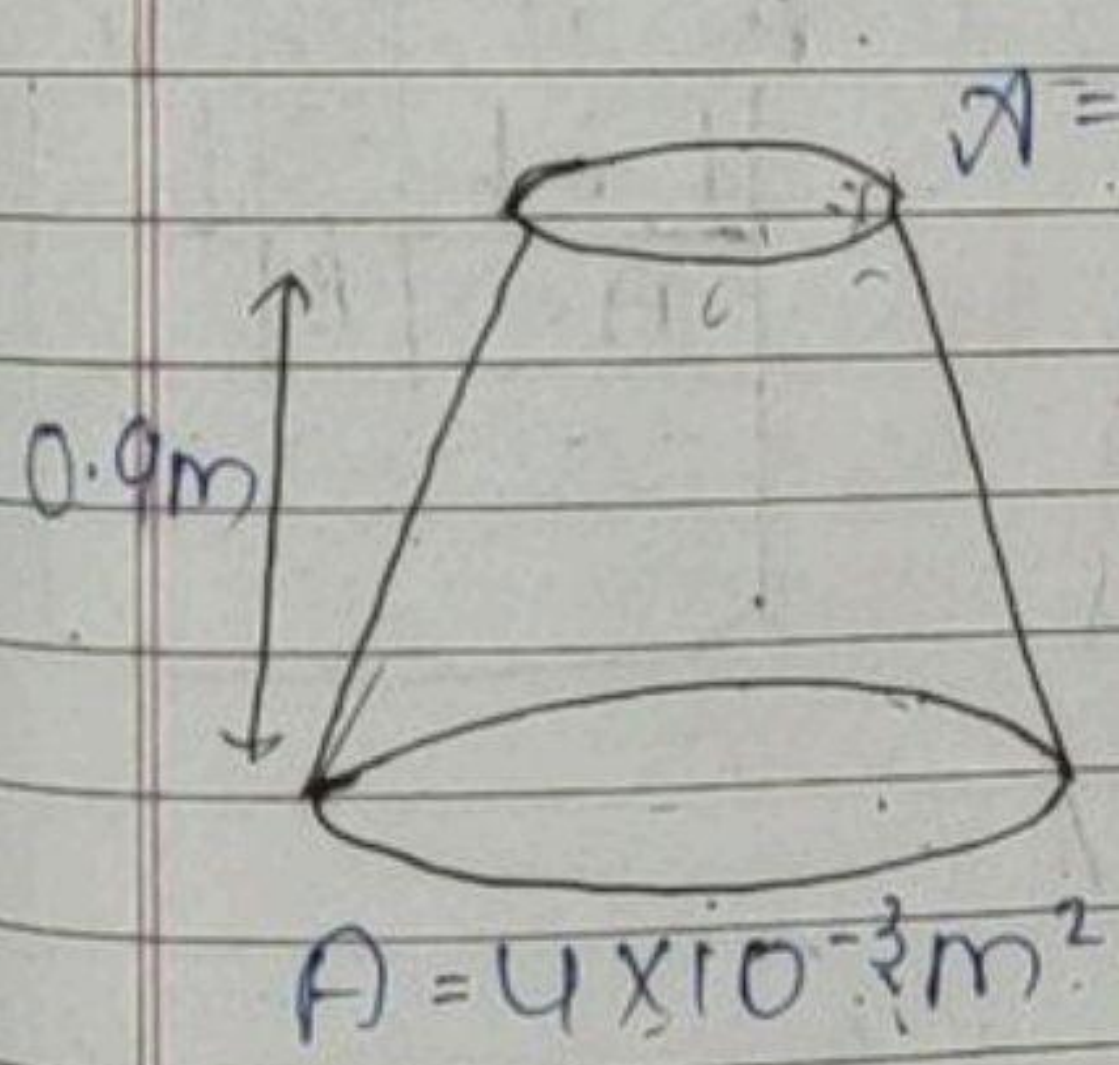 A =
0.9m
A = 4X10⁻³m²